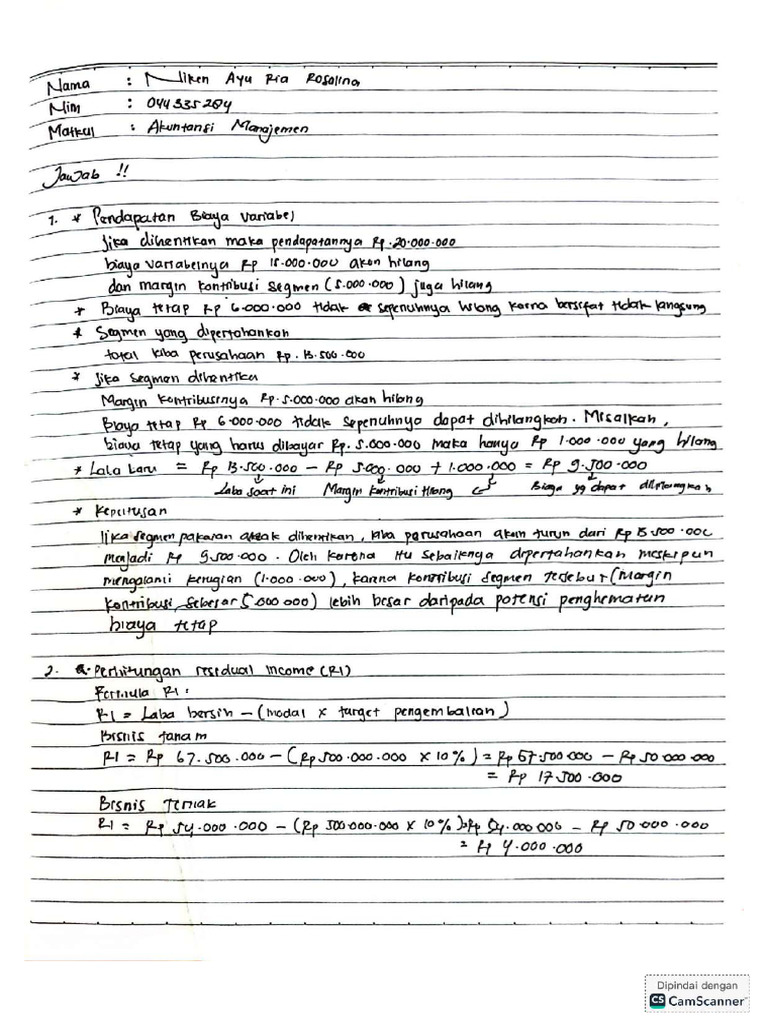 Nama : Niken Ayu Ria Rosalina
Nim : 044335284
Matkul : Akuntansi Manajemen
Jawab !!
1. * Pendapatan Biaya Variabel
Jika dihentikan maka pendapatannya Rp.20.000.000
biaya variabelnya Rp 15.000.000 akan hilang
dan margin kontribusi segmen (5.000.000) juga hilang
* Biaya tetap Rp 6.000.000 tidak sepenuhnya hilang karna bersifat tidak langsung
* Segmen yang dipertahankan
total laba perusahaan Rp. 13.500.000
* Jika segmen dihentika
Margin kontribusinya Rp.5.000.000 akan hilang
Biaya tetap Rp 6.000.000 tidak sepenuhnya dapat dihilangkan. Misalkan,
biaya tetap yang harus dibayar Rp. 5.000.000 maka hanya Rp 1.000.000 yang hilang
* Laba baru = Rp 13.500.000 - Rp 5.000.000 + 1.000.000 = Rp 9.500.000
Laba saat ini Margin kontribusi hilang Biaya yg dapat dihilangkan
* Keputusan
Jika segmen pakaian dihentikan, laba perusahaan akan turun dari Rp 13.500.000
menjadi Rp 9.500.000. Oleh karena itu sebaiknya dipertahankan meskipun
mengalami kerugian (1.000.000), karna kontribusi segmen tersebut (Margin
kontribusi sebesar 5.000.000) lebih besar daripada potensi penghematan
biaya tetap
2. Perhitungan residual income (RI)
Formula RI :
RI = Laba bersih - (modal x target pengembalian)
Bisnis tanam
RI = Rp 67.500.000 - (Rp 500.000.000 x 10%) = Rp 67.500.000 - Rp 50.000.000
= Rp 17.500.000
Bisnis Ternak
RI = Rp 54.000.000 - (Rp 500.000.000 x 10%) Rp 54.000.000 - Rp 50.000.000
= Rp 4.000.000
Dipindai dengan
CS CamScanner